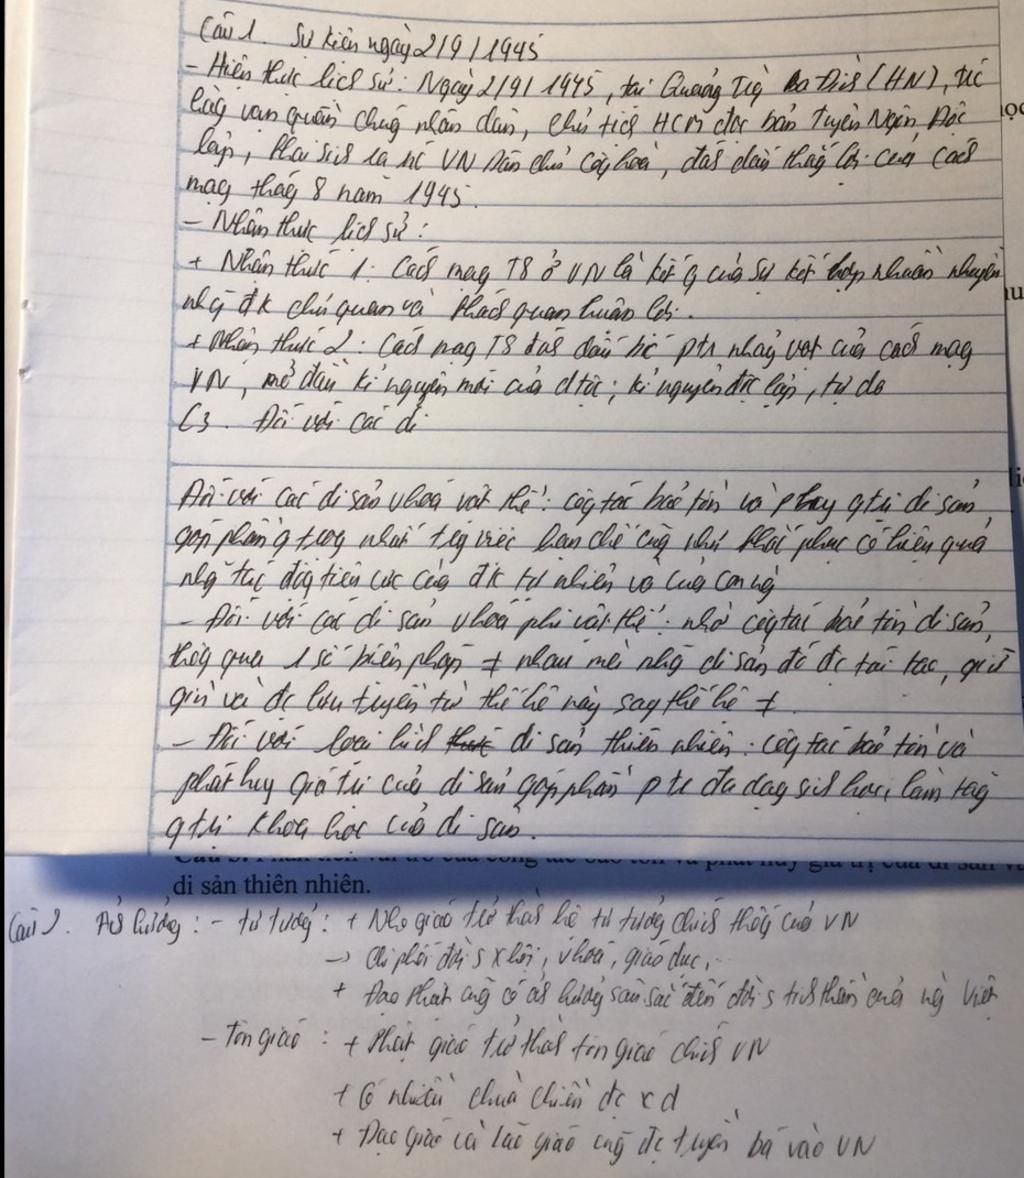 Câu 1. Sự kiện ngày 2/9/1945
- Hiện thực lịch sử: Ngày 2/9/1945, tại Quảng Trg Ba Đìh (HN), trc
hàg vạn quần chúg nhân dân, chủ tịch HCM đọc bản Tuyên Ngôn Độc
lập, khai sih ra nc VN Dân chủ Cộg hoà, đáh dấu thắg lợi của Cách
mạg thág 8 năm 1945.
- Nhận thức lịch sử:
+ Nhận thức 1: Cách mạg T8 ở VN là kết q của sự kết hợp nhuần nhuyễn
nhg đk chủ quan và khách quan thuận lợi.
+ Nhận thức 2: Cách mạg T8 đáh dấu bc ptr nhảy vọt của cách mạg
VN, mở đầu kỉ nguyên mới của dtộc; kỉ nguyên độc lập, tự do
C3. Đối với các di
Đối với các di sản vhoá vật thể: côg tác bảo tồn và phuy gtrị di sản
góp phần q trọg nhất trg việc hạn chế cũg như khắc phục có hiệu quả
nhg tác độg tiêu cực của đk tự nhiên và của con ng
- Đối với các di sản vhoá phi vật thể: nhờ côg tác bảo tồn di sản,
thôg qua 1 số biện pháp ≠ nhau mà nhg di sản đó đc tái tạo, giữ
gìn và đc lưu truyền từ thế hệ này sag thế hệ ≠
- Đối với loại hìh di sản thiên nhiên: côg tác bảo tồn và
phát huy giá trị của di sản góp phần ptr đa dạg sih học, làm tăg
gtrị khoa học của di sản.
di sản thiên nhiên.
Câu 2. Ảh hưởg: - tư tưởg: + Nho giáo trở thàh hệ tư tưởg chíh thốg của VN
-> chi phối đời s xhội, vhoá, giáo dục,..
+ Đạo Phật cũg có ảh hưởg sâu sắc đến đời s tih thần của ng Việt
- Tôn giáo: + Phật giáo trở thàh tôn giáo chíh VN
+ Có nhiều chùa chiền đc xd
+ Đạo giáo và Lão giáo cũg đc truyền bá vào VN